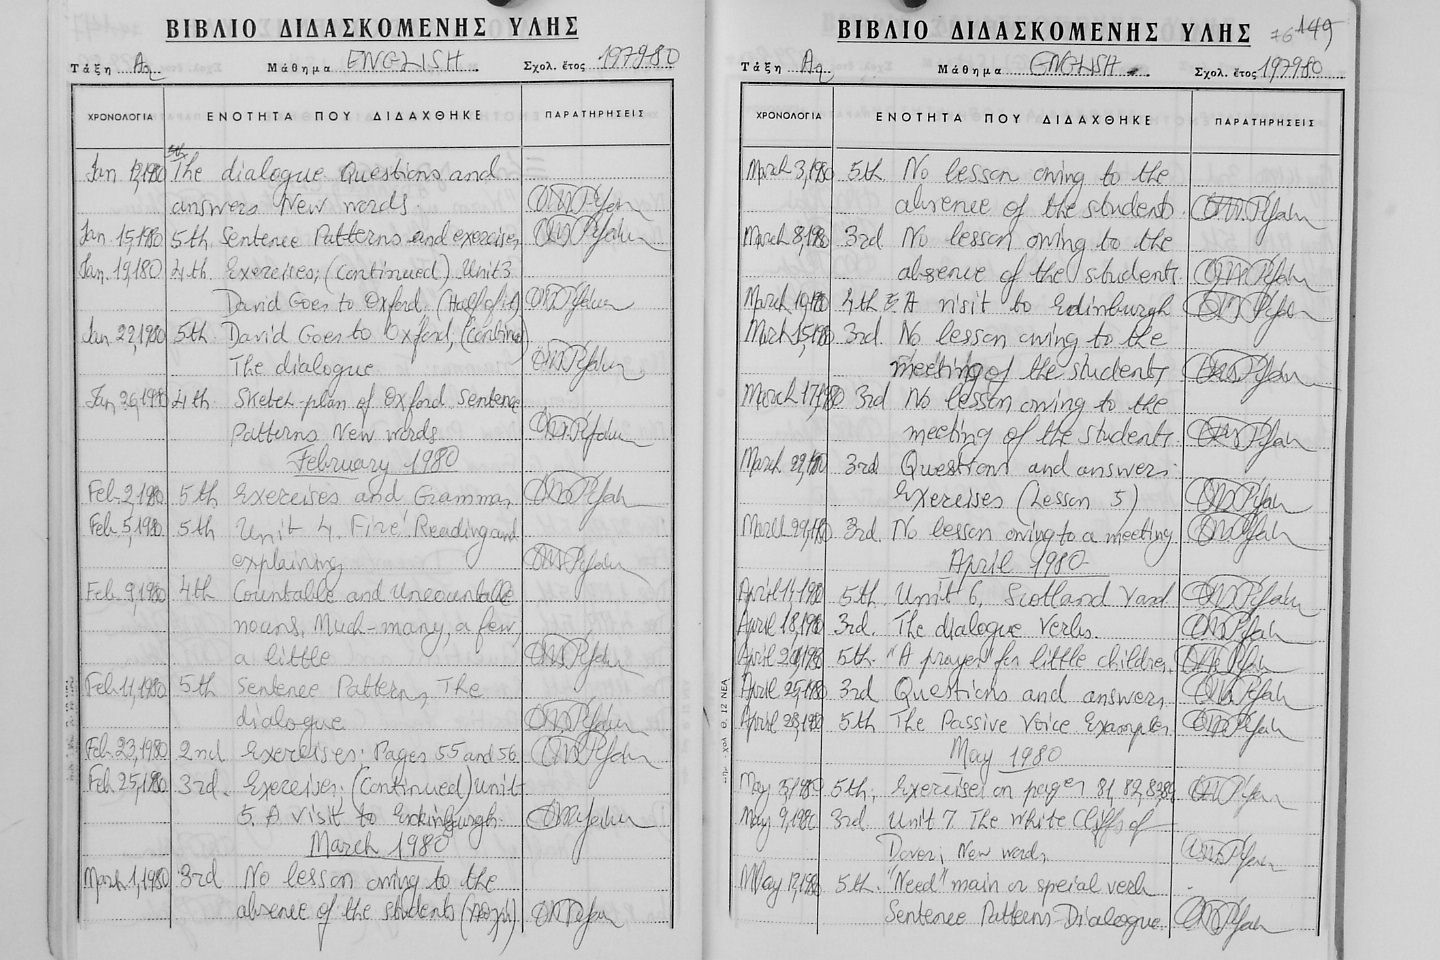 ΒΙΒΛΙΟ ΔΙΔΑΣΚΟΜΕΝΗΣ ΥΛΗΣ
Τάξη Αγ. Μάθημα ENGLISH Σχολ. έτος 1979-80
ΧΡΟΝΟΛΟΓΙΑ ΕΝΟΤΗΤΑ ΠΟΥ ΔΙΔΑΧΘΗΚΕ ΠΑΡΑΤΗΡΗΣΕΙΣ
5th
Jan 12, 1980 The dialogue Questions and
answers New words
Jan. 15, 1980 5th Sentence Patterns and exercises
Jan. 19, 180 4th Exercises; (Continued) Unit 3
David Goes to Oxford. (Half of it)
Jan 22, 1980 5th David Goes to Oxford, (Continued)
The dialogue
Jan 26, 1980 4th Sketch-plan of Oxford Sentence
Patterns New words
February 1980
Feb 2, 1980 5th Exercises and Grammar
Feb. 5, 1980 5th Unit 4. Fire! Reading and
explaining
Feb 9, 1980 4th Countable and Uncountable
nouns. Much-many, a few,
a little
Feb 11, 1980 5th Sentence Patterns, The
dialogue
Feb. 23, 1980 2nd Exercises: Pages 55 and 56
Feb 25, 1980 3rd. Exercises: (Continued) Unit
5. A visit to Edinburgh.
March 1980
March 1, 1980 3rd No lesson owing to the
absence of the students
ΒΙΒΛΙΟ ΔΙΔΑΣΚΟΜΕΝΗΣ ΥΛΗΣ 76 149
Τάξη Αγ. Μάθημα ENGLISH. Σχολ. έτος 1979-80
ΧΡΟΝΟΛΟΓΙΑ ΕΝΟΤΗΤΑ ΠΟΥ ΔΙΔΑΧΘΗΚΕ ΠΑΡΑΤΗΡΗΣΕΙΣ
March 3, 1980 5th No lesson owing to the
absence of the students
March 8, 1980 3rd No lesson owing to the
absence of the students
March 10, 1980 4th A visit to Edinburgh
March 15, 1980 3rd. No lesson owing to the
meeting of the students
March 17, 1980 3rd No lesson owing to the
meeting of the students
March 22, 1980 3rd Questions and answers
Exercises (Lesson 5)
March 29, 180 3rd. No lesson owing to a meeting
April 1980
April 14, 1980 5th. Unit 6, Scotland Yard
April 18, 1980 3rd. The dialogue Verbs.
April 1980 5th. "A prayer" for little children.
April 25, 1980 3rd Questions and answers
April 28, 1980 5th The Passive Voice Examples
May 1980
May 5, 1980 5th, Exercises on pages 81, 82, 83, 84
May 9, 1980 3rd. Unit 7. The White Cliffs of
Dover; New words
May 12, 1980 5th. "Need" main or special verb
Sentence Patterns-Dialogue.